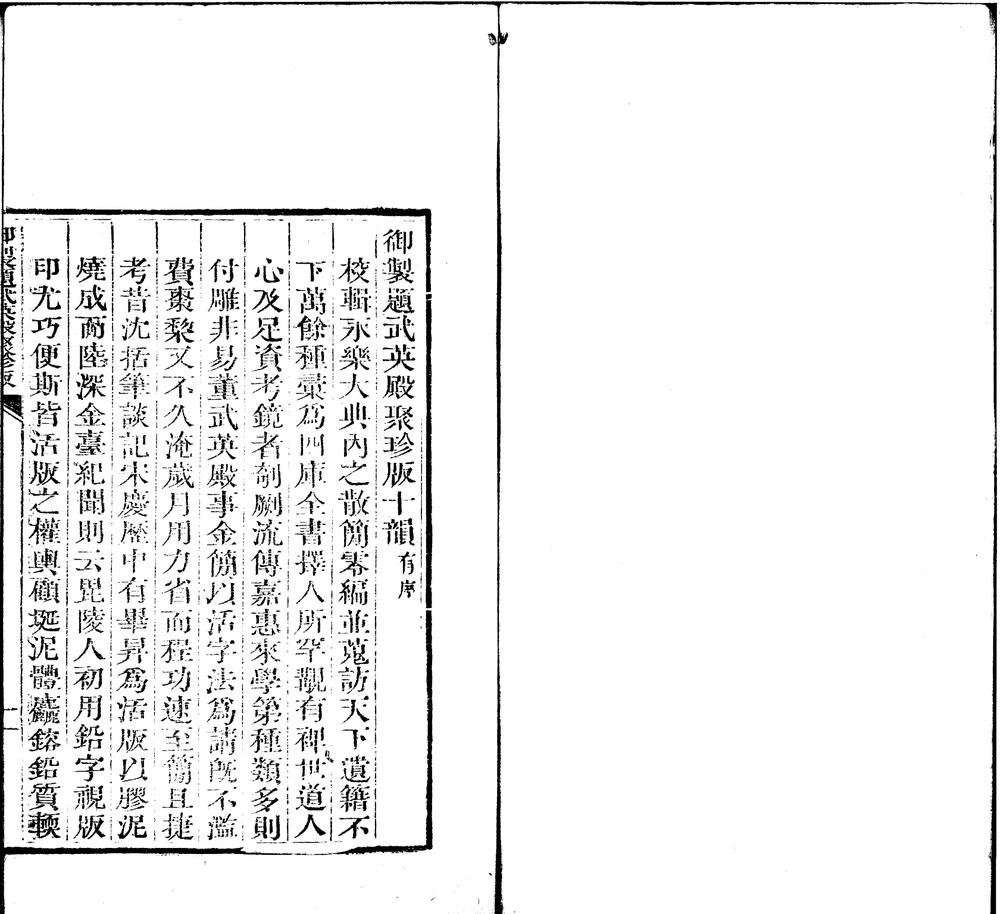 御製題武英殿聚珍版十韻有序
校輯永樂大典內之散簡零編並蒐訪天下遺籍不
下萬餘種彚爲四庫全書擇人所罕觀有裨世道人
心及足資考鏡者剞劂流傳嘉惠來學第種類多則
付雕非易董武英殿事金簡以活字法爲請旣不濫
費棗棃又不久淹歲月用力省而程功速至簡且捷
考昔沈括筆談記宋慶歷中有畢昇爲活版以膠泥
燒成而陸深金臺紀聞則云毘陵人初用鉛字視版
印尤巧便斯皆活版之權輿顧埏泥體麤鎔鉛質輭
御製題武英殿聚珍版
一